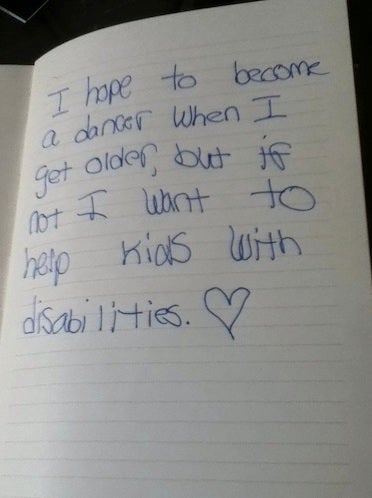 I hope to become
a dancer when I
get older, but if
not I want to
help kids with
disabilities. ♡